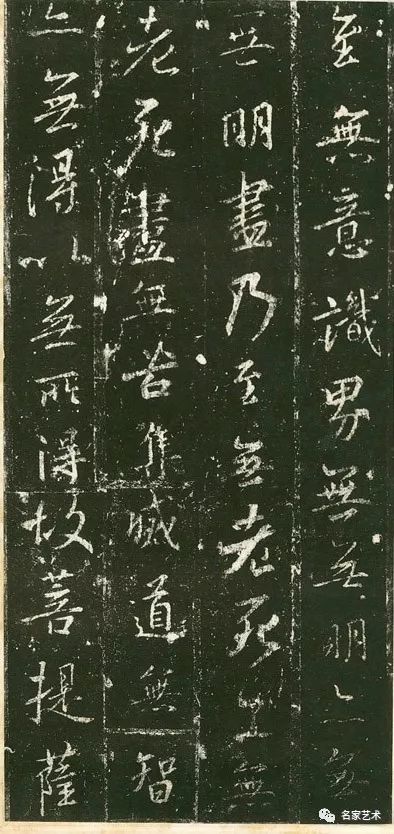 至無意識界無無明亦無
無明盡乃至無老死亦無
老死盡無苦集滅道無智
亦無得以無所得故菩提薩
名家艺术